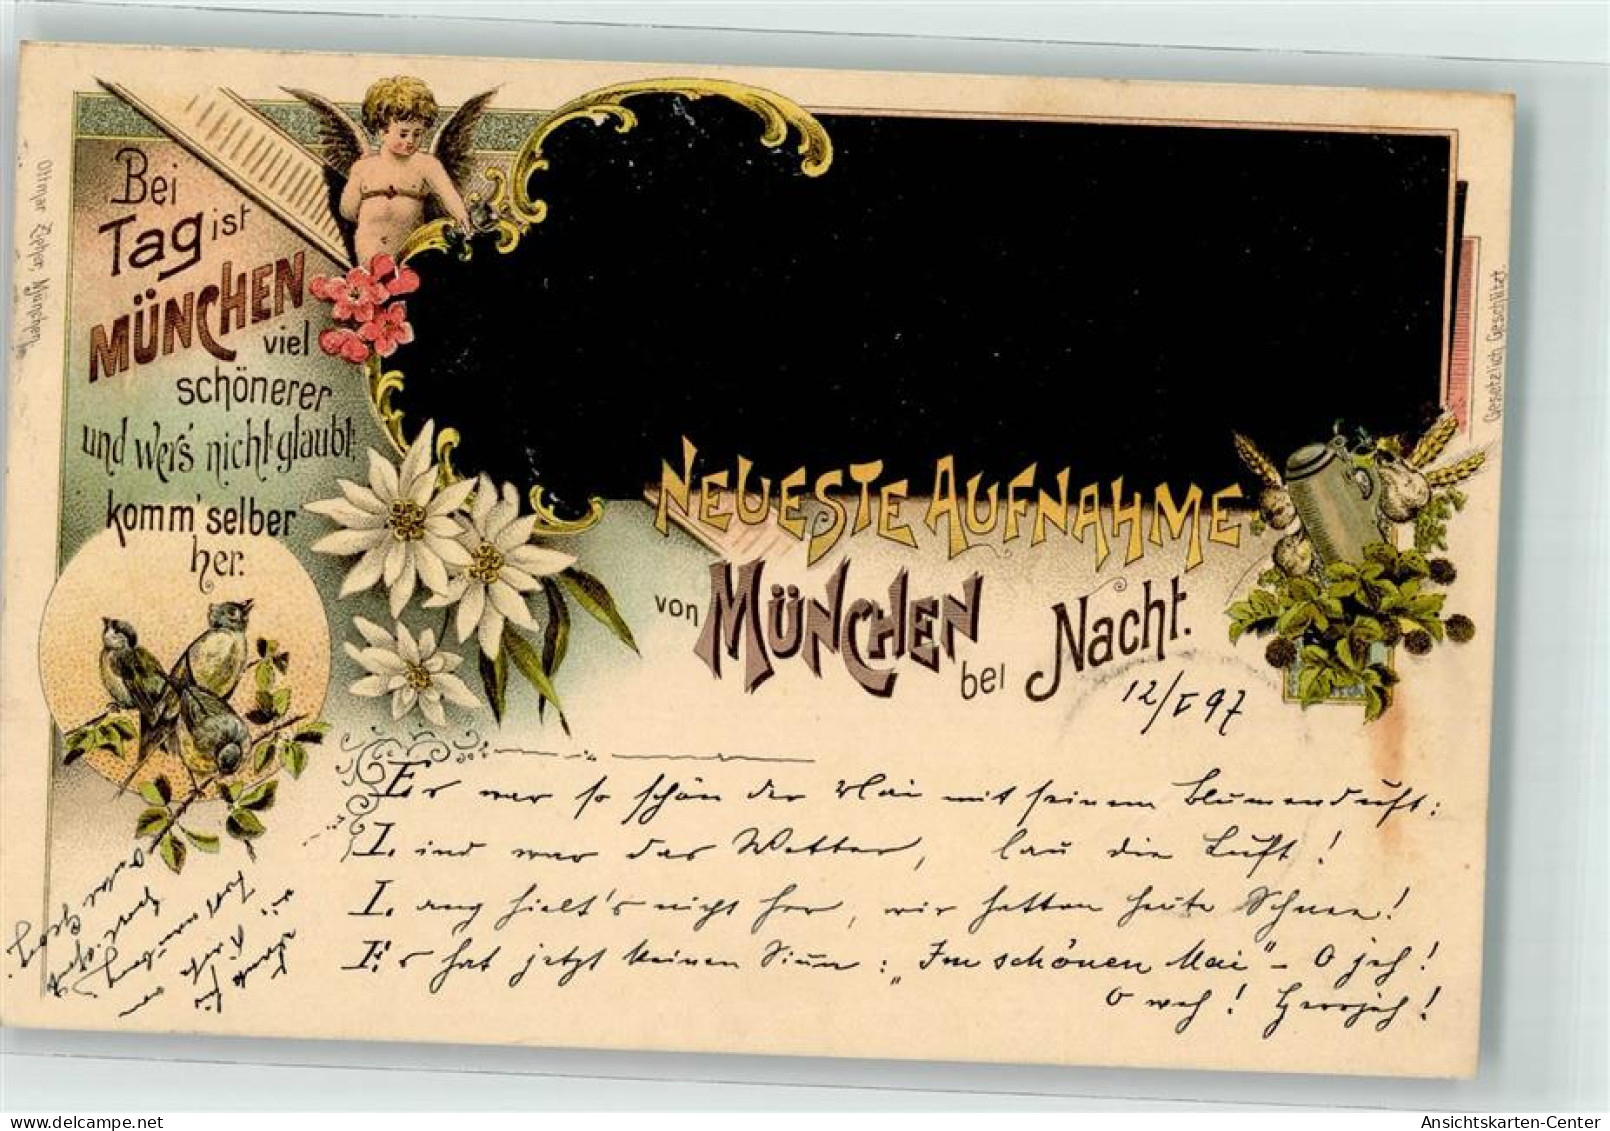 Bei
Tag ist
MÜNCHEN
viel
schönerer
und wer's nicht glaubt,
komm' selber
her.
Ottmar Zieher, München
Gesetzlich Geschützt.
NEUESTE AUFNAHME
von MÜNCHEN bei Nacht.
12/V 97
Es war so schön der Mai mit seinem Blumenduft:
Lind war das Wetter, lau die Luft!
Lang hielt's nicht her, wir hatten heute Schnee!
Es hat jetzt keinen Sinn: "Im schönen Mai" - O jeh!
O weh! Herrjeh!
Karte
Georg
Ansichtskarten-Center